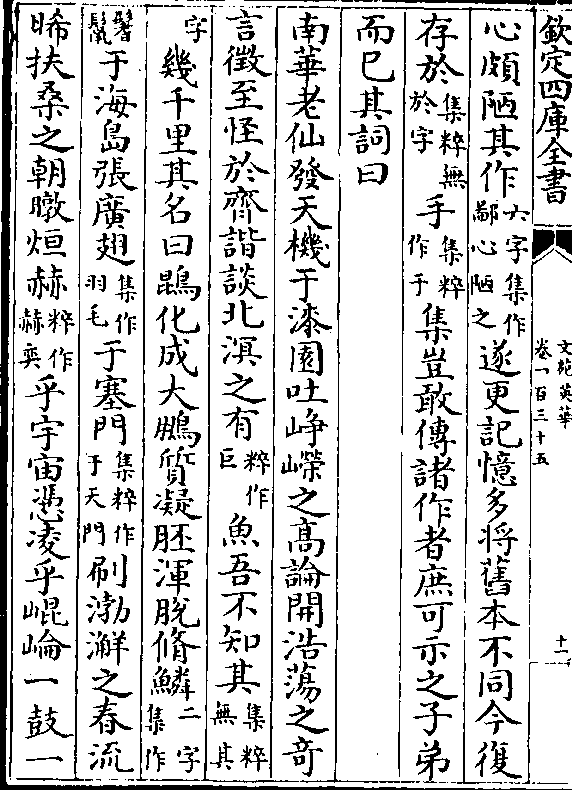 欽定四庫全書
文苑英華
卷一百三十五
十一
心頗陋其作六字集作鄙心陋之遂更記憶多將舊本不同今復
存於集粹無於字手集粹作于集豈敢傳諸作者庶可示之子弟
而已其詞曰
南華老仙發天機于漆園吐崢嶸之髙論開浩蕩之竒
言徴至怪於齊諧談北溟之有粹作巨魚吾不知其集粹無其
字幾千里其名曰鵾化成大鵬質凝胚渾脫脩鱗二字集作
鬐鬣于海島張廣翅集作羽毛于塞門集粹作于天門刷渤澥之春流
晞扶桑之朝暾烜赫粹作赫奕乎宇宙憑凌乎崐崘一鼓一